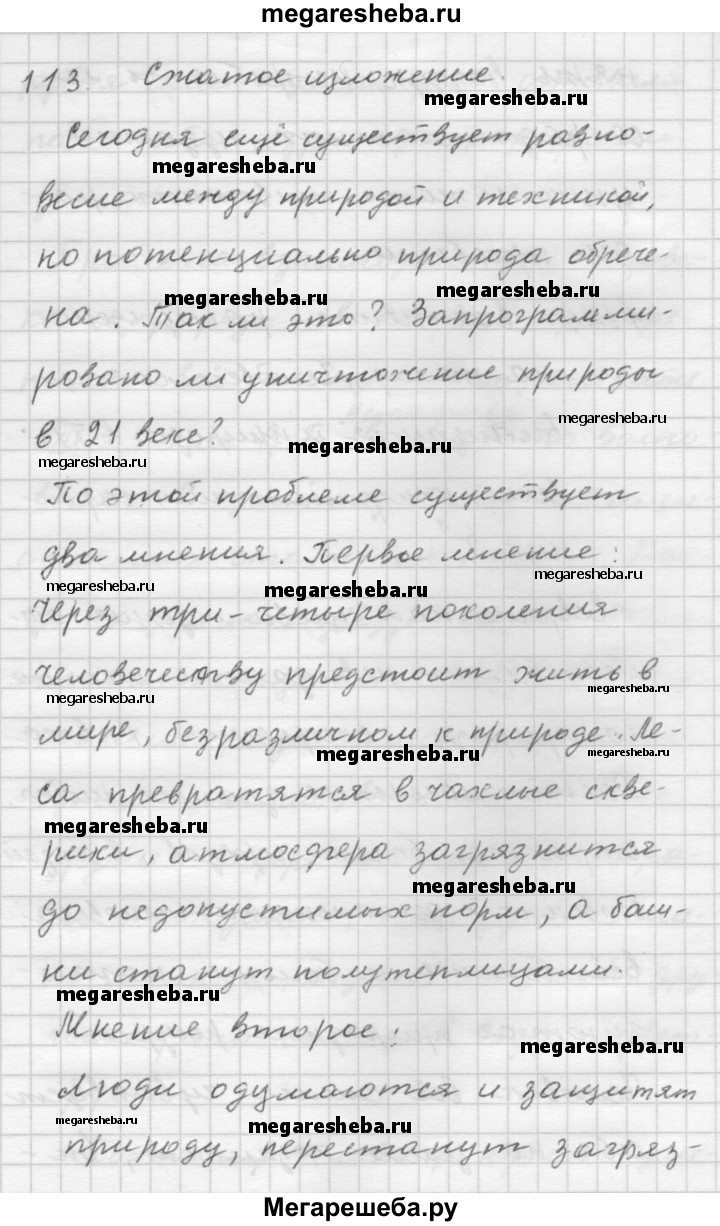 megaresheba.ru
113. Сжатое изложение.
megaresheba.ru
Сегодня ещё существует равно-
megaresheba.ru
весие между природой и техникой,
но потенциально природа обрече-
megaresheba.ru megaresheba.ru
на. Так ли это? Запрограмми-
ровано ли уничтожение природы
megaresheba.ru
в 21 веке?
megaresheba.ru megaresheba.ru
По этой проблеме существует
два мнения. Первое мнение:
megaresheba.ru megaresheba.ru megaresheba.ru
Через три-четыре поколения
человечеству предстоит жить в
megaresheba.ru megaresheba.ru
мире, безразличном к природе. Ле-
megaresheba.ru megaresheba.ru
са превратятся в чахлые скве-
megaresheba.ru
рики, атмосфера загрязнится
megaresheba.ru
до недопустимых норм, а баш-
ни станут полутеплицами.
megaresheba.ru
Мнение второе:
megaresheba.ru
Люди одумаются и защитят
megaresheba.ru megaresheba.ru
природу, перестанут загряз-
Мегарешеба.ру